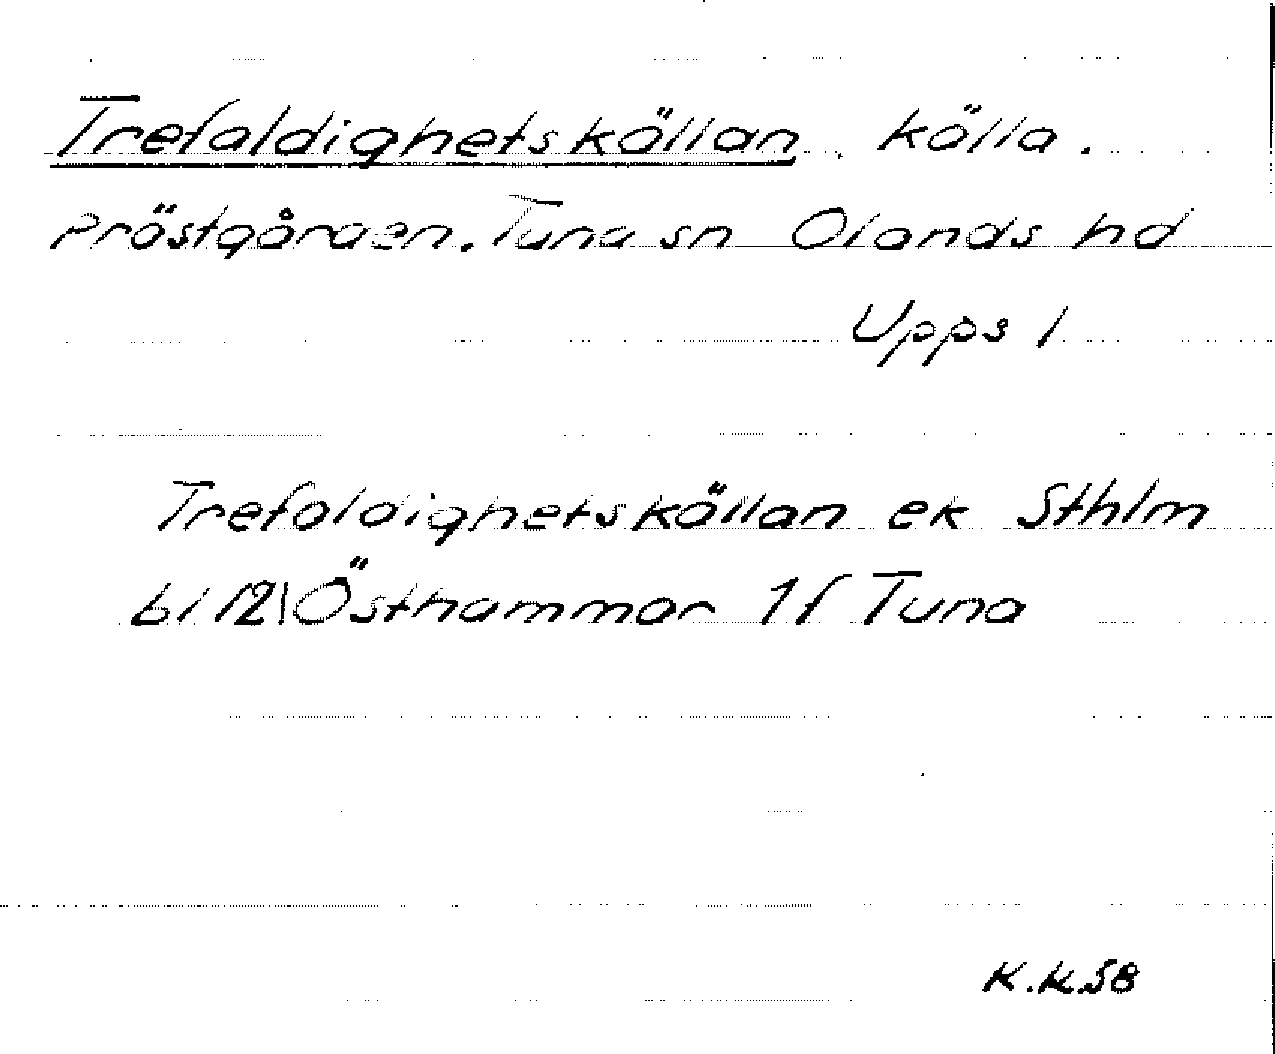 Trefaldighetskällan, källa.
Prästgården. Tuna sn Olands hd
Upps l
Trefaldighetskällan ek Sthlm
bl 12\Östhammar 1f Tuna
K.K.58